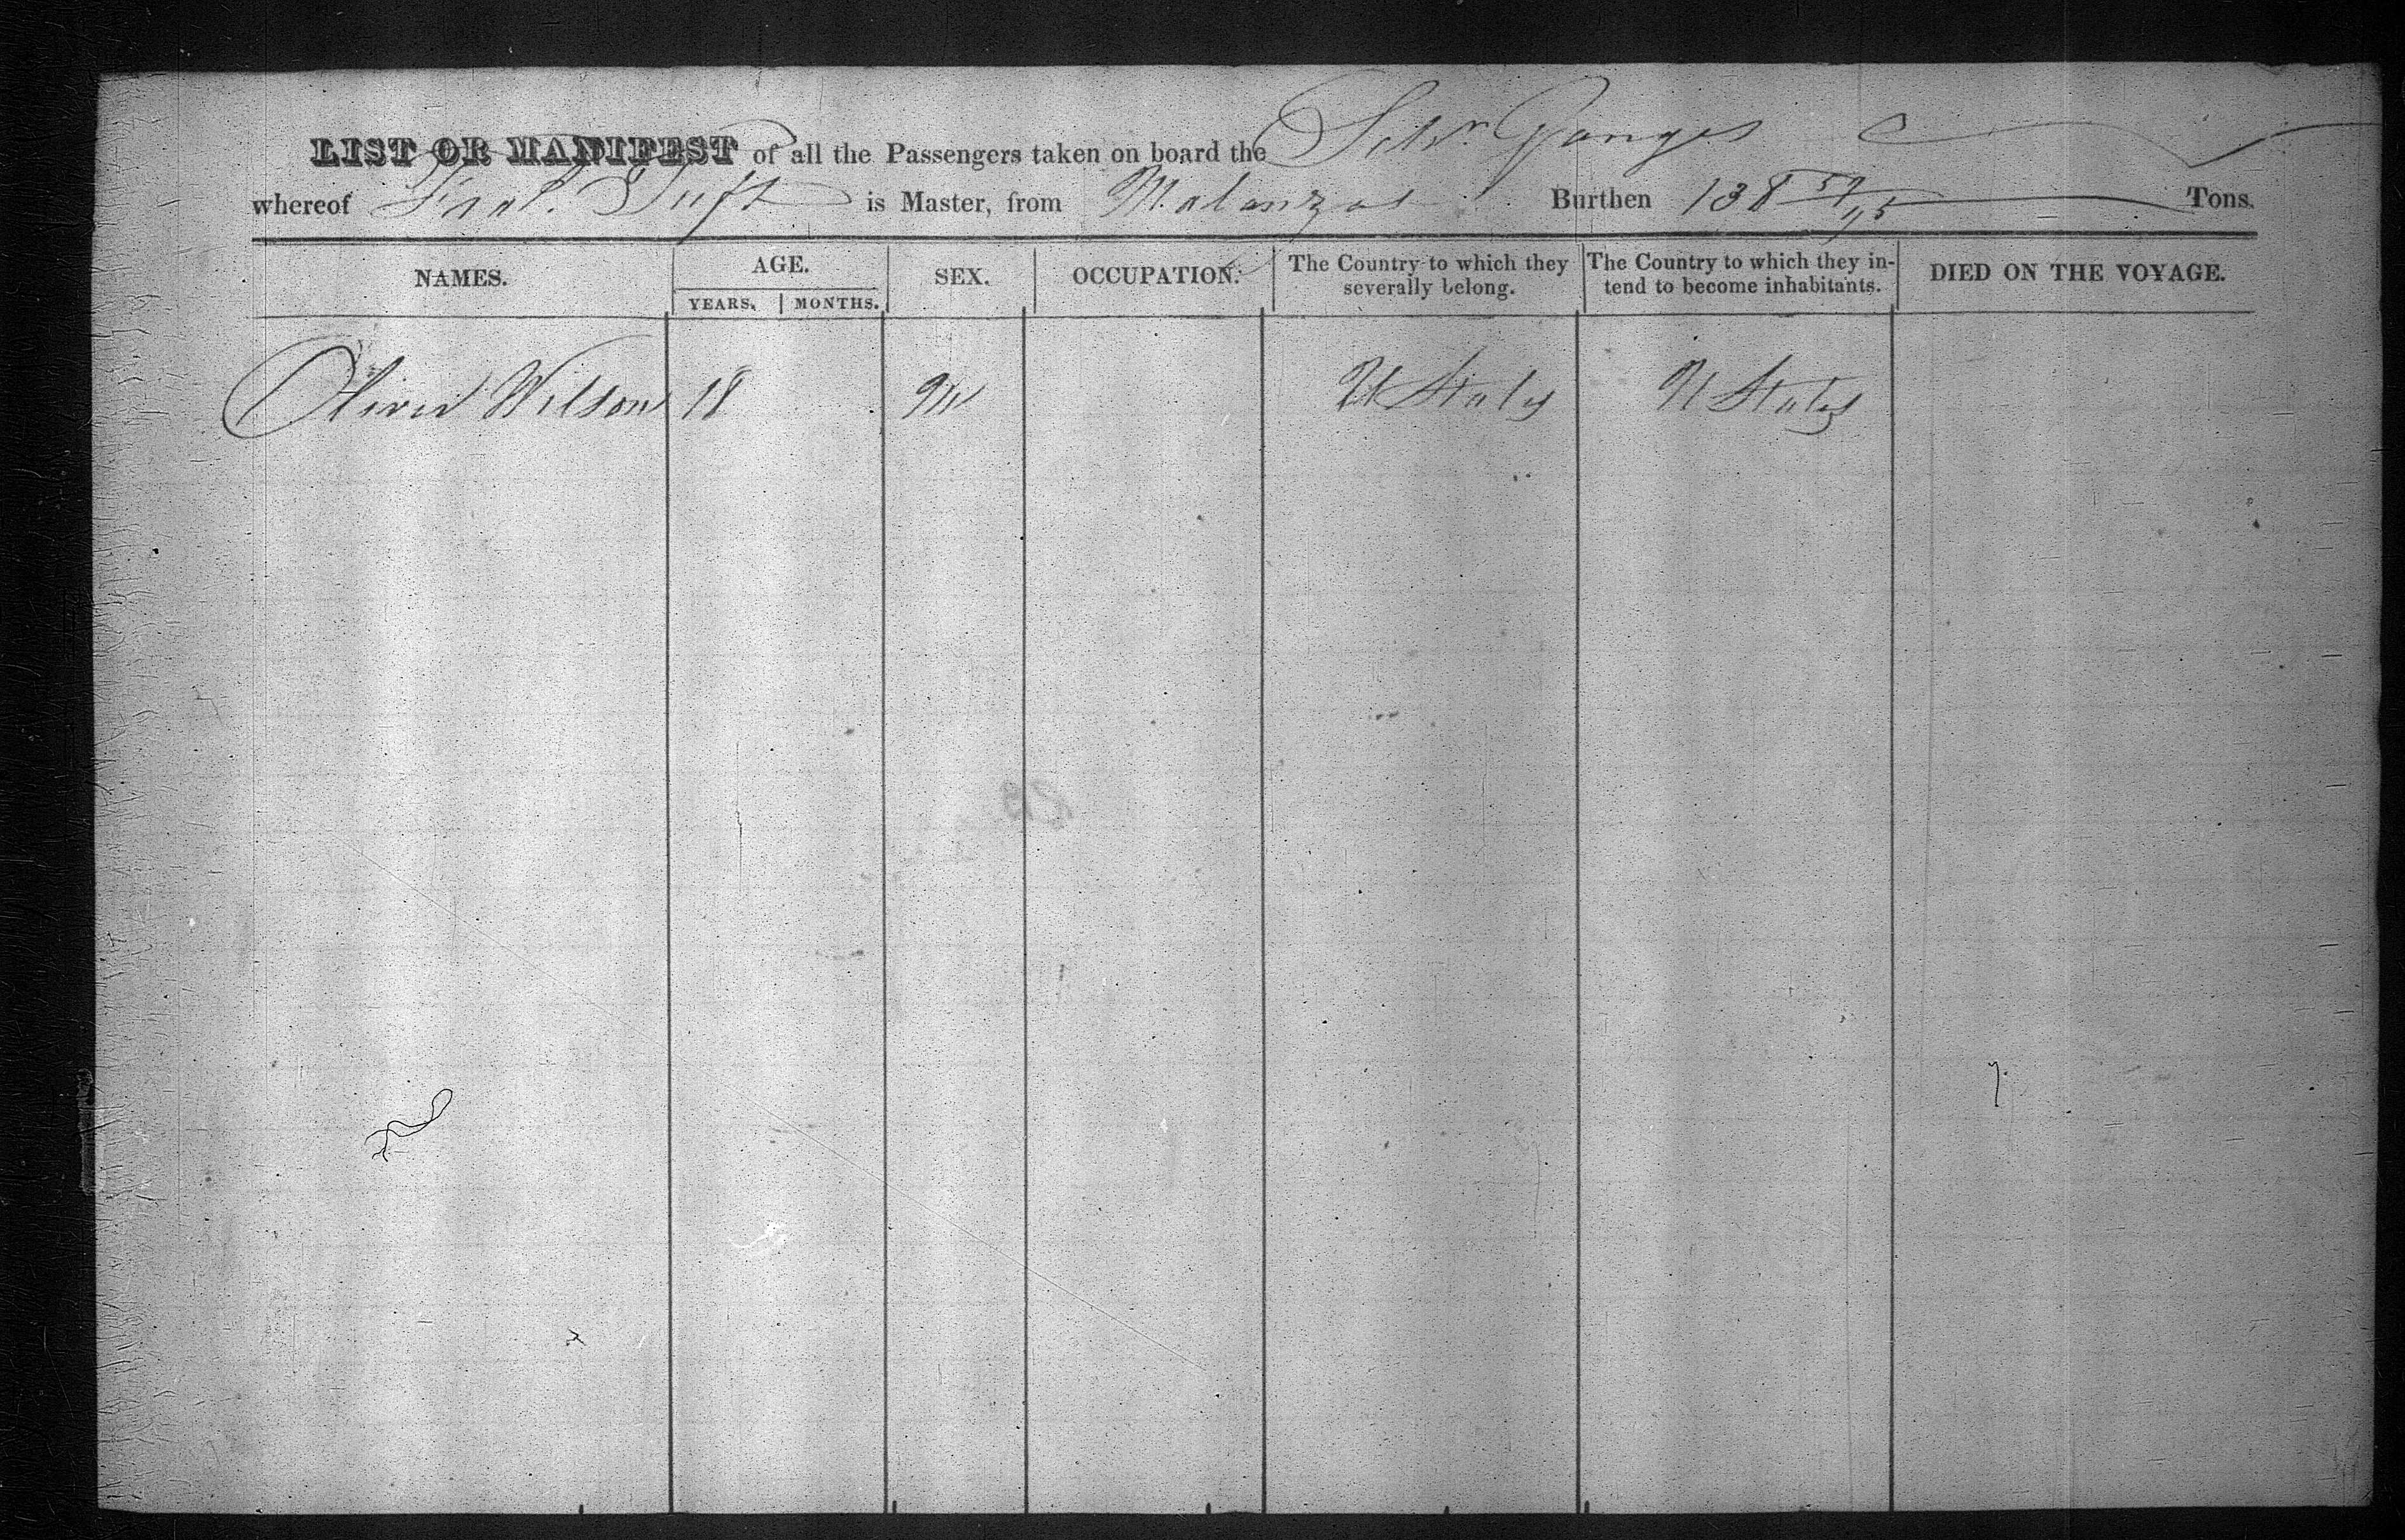 LIST OR MANIFEST of all the Passengers taken on board the Schr. Ganges
whereof Tuft is Master, from Matanzas Burthen 138 57/95 Tons.
NAMES. AGE. SEX. OCCUPATION. The Country to which they severally belong. The Country to which they in- tend to become inhabitants. DIED ON THE VOYAGE.
YEARS. MONTHS.
Oliver Wilson 18 M U States U States